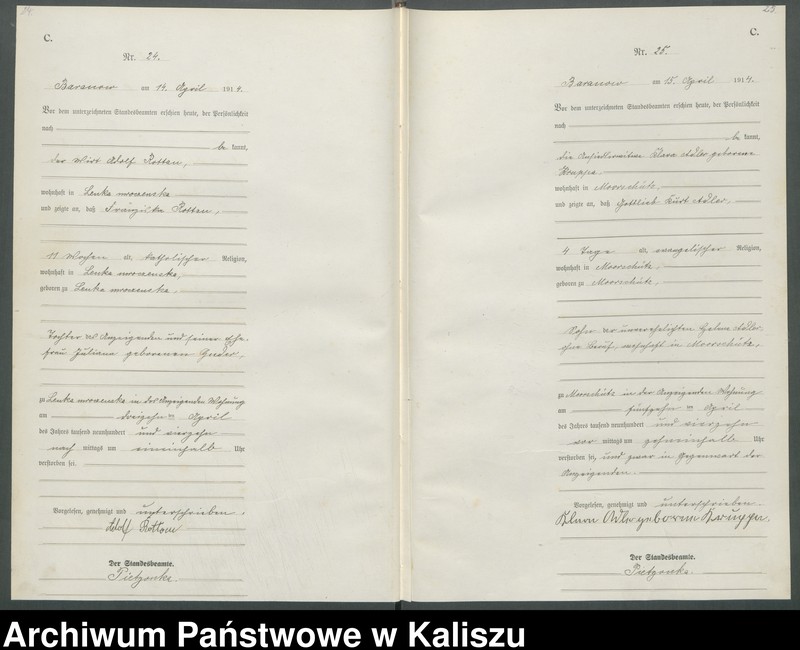 C.
Nr. 24.
Baranow am 14. April 1914.
Vor dem unterzeichneten Standesbeamten erschien heute, der Persönlichkeit
nach
be kannt,
der Wirt Adolf Rottau,
wohnhaft in Lenka mroczenska
und zeigte an, daß Franziska Rottau,
11 Wochen alt, katholischer Religion,
wohnhaft in Lenka mroczenska,
geboren zu Lenka mroczenska,
Tochter des Anzeigenden und seiner Ehe-
frau Juliana geborenen
zu Lenka mroczenska in des Anzeigenden Wohnung
am dreizehnten April
des Jahres tausend neunhundert und vierzehn
nach mittags um eineinhalb Uhr
verstorben sei.
Vorgelesen, genehmigt und unterschrieben.
Adolf Rottau
Der Standesbeamte.
Pietzonka.
25.
C.
Nr. 25.
Baranow am 15. April 1914.
Vor dem unterzeichneten Standesbeamten erschien heute, der Persönlichkeit
nach
be kannt,
die Ansiedlerwitwe Klara Adler geborene
Kruppa
wohnhaft in Moorschütz,
und zeigte an, daß Gottlieb Kurt Adler,
4 Tage alt, evangelischer Religion,
wohnhaft in Moorschütz,
geboren zu Moorschütz,
Sohn der unverehelichten Adler,
ohne Beruf, wohnhaft in Moorschütz,
zu Moorschütz in der Anzeigenden Wohnung
am fünfzehnten April
des Jahres tausend neunhundert und vierzehn
vor mittags um zehneinhalb Uhr
verstorben sei, und zwar in Gegenwart der
Anzeigenden.
Vorgelesen, genehmigt und unterschrieben.
Klara Adler geborne Kruppa.
Der Standesbeamte.
Pietzonka.
Archiwum Państwowe w Kaliszu